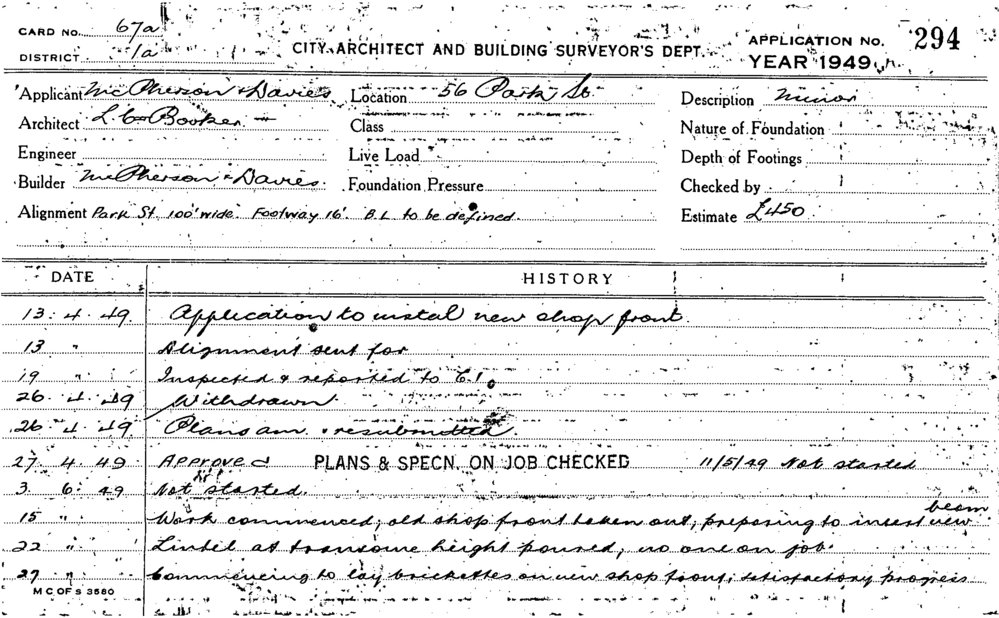 CARD No. 67a
DISTRICT 1a
CITY ARCHITECT AND BUILDING SURVEYOR'S DEPT.
APPLICATION No. 294
YEAR 1949
Applicant McPherson & Davies Location 56 Park St. Description Minor
Architect L C Booker Class Nature of Foundation
Engineer Live Load Depth of Footings
Builder McPherson & Davies. Foundation Pressure Checked by
Alignment Park St. 100' wide. Footway 16'. B.L. to be defined. Estimate £450
DATE HISTORY
13. 4. 49. Application to instal new shop front.
13 " Alignment sent for
19 " Inspected & reported to C.I.
26. 4. 49 Withdrawn.
26. 4. 49 Plans am. & resubmitted
27. 4. 49 Approved PLANS & SPECN. ON JOB CHECKED 11/5/49 Not started
3. 6. 49 Not started.
15 " Work commenced; old shop front taken out, preparing to insert new beam
22 " Lintel at transome height poured, no one on job.
27 " Commencing to lay brickettes on new shop front; satisfactory progress
M C OF S 3560